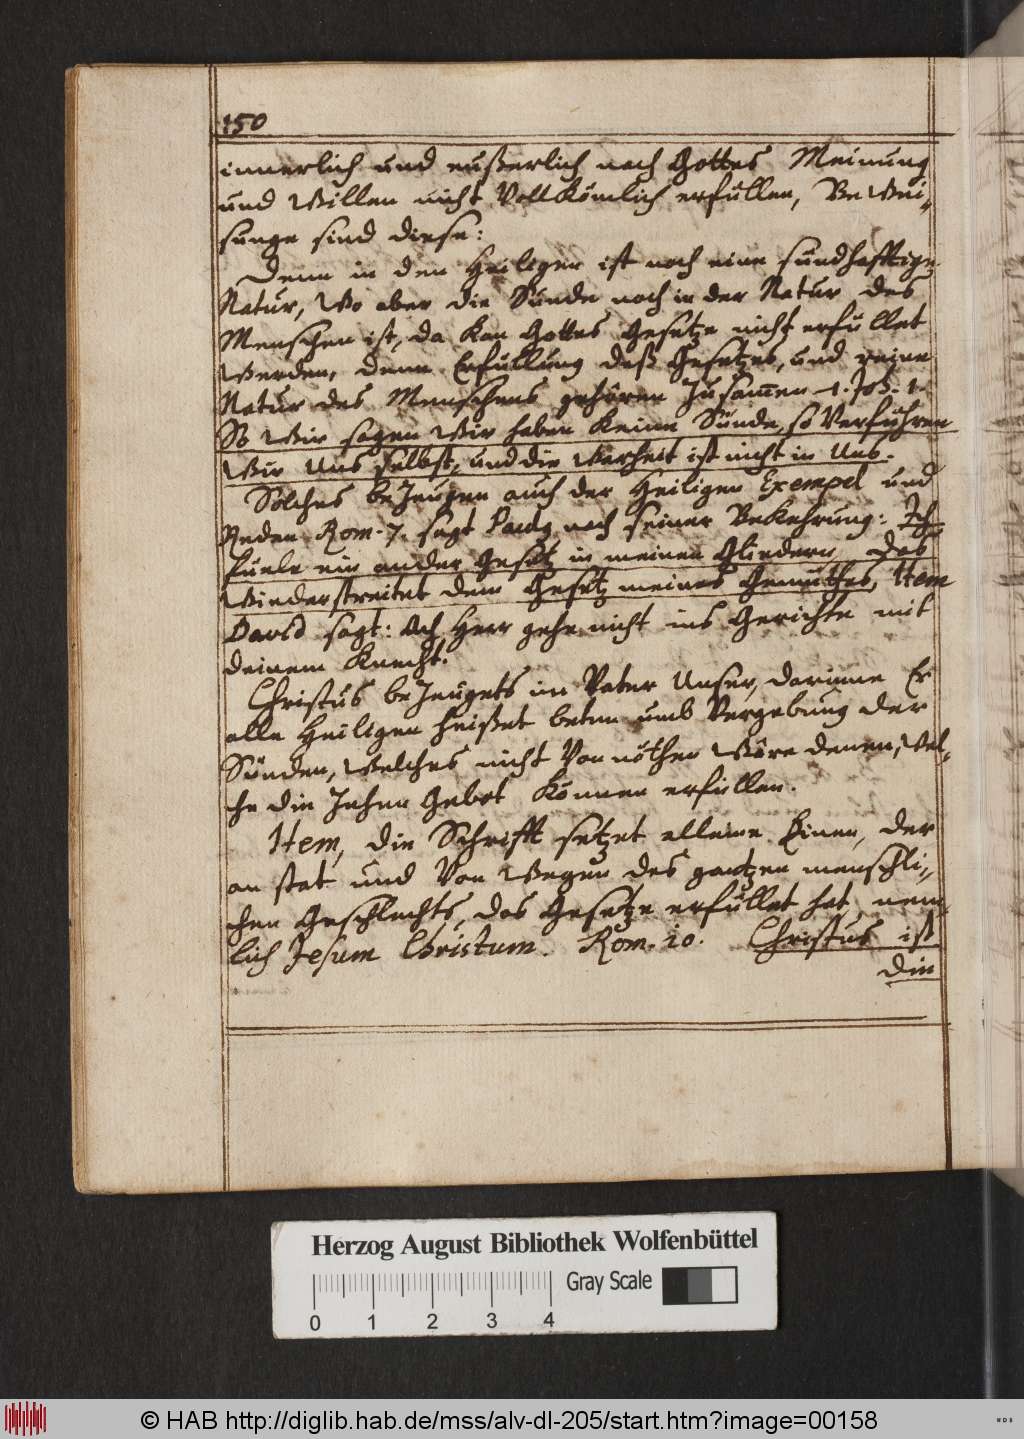 150
innerlich und eußerlich nach Gottes Meinung
und Willen nicht Vollkömlich erfüllen, Bewei„
sunge sind diese:
Denn in den Heiligen ist noch eine sündhafftige
Natur, Wo aber die Sünde noch in der Natur des
Menschen ist, da kan Gottes Gesetze nicht erfüllet
Werden, denn Erfüllung deß Gesetzes, und reine
Natur des Menschens gehören Zusam̄en 1. Joh. 1.
So Wir sagen Wir haben keine Sünde, so Verführen
Wir Uns selbst, und die Warheit ist nicht in Uns.
Solches beZeugen auch der Heiligen Exempel und
Reden Rom. 7. sagt Paulg nach seiner Bekehrung: Ich
fuele ein ander Gesetz in meinen Gliedern, das
Wiederstreitet dem Gesetz meines Gemüthes, Item
David sagt: Ach Herr gehe nicht ins Gerichte mit
deinem Knecht.
Christus beZeugets im Vater Unser, darinne Er
alle Heiligen heißet beten umb Vergebung der
Sünden, Welches nicht Von nöthen Wäre denen, Wel„
che die Zehen Gebot können erfüllen.
Item, die Schrifft setzet alleine Einen, der
an stat und Von Wegen des gantzen menschli„
chen Geschlechts, das Gesetze erfüllet hat, nem„
lich Jesum Christum. Rom. 10. Christus ist
die
Herzog August Bibliothek Wolfenbüttel
Gray Scale
0 1 2 3 4
© HAB http://diglib.hab.de/mss/alv-dl-205/start.htm?image=00158
WDB